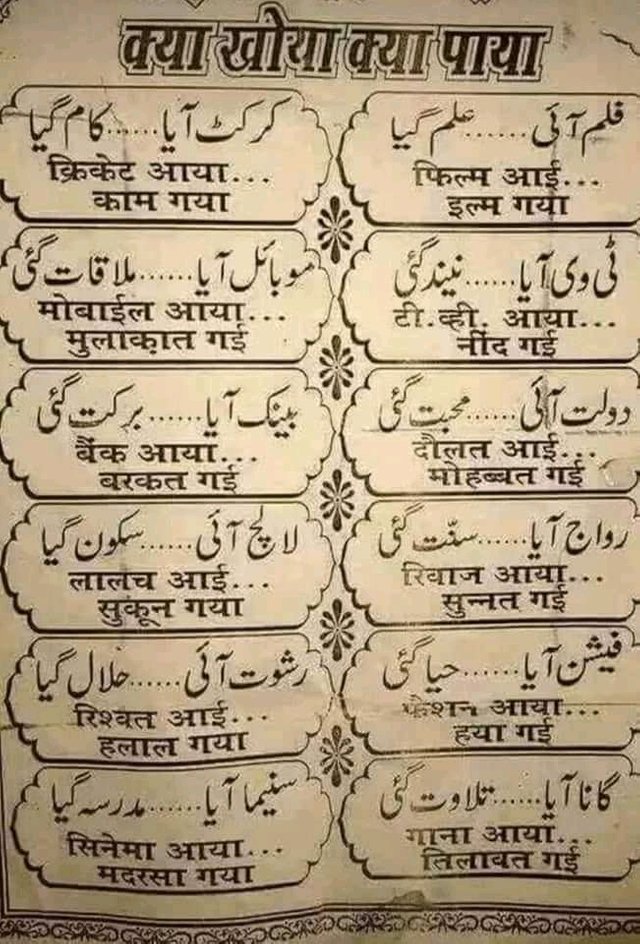 क्या खोया क्या पाया
کرکٹ آیا......کام گیا
क्रिकेट आया...
काम गया
فلم آئی......علم گیا
फिल्म आई...
इल्म गया
موبائل آیا......ملاقات گئی
मोबाईल आया...
मुलाक़ात गई
ٹی وی آیا......نیند گئی
टी.व्ही. आया...
नींद गई
بینک آیا......برکت گئی
बैंक आया...
बरकत गई
دولت آئی......محبت گئی
दौलत आई...
मोहब्बत गई
لالچ آئی......سکون گیا
लालच आई...
सुकून गया
رواج آیا......سنّت گئی
रिवाज आया...
सुन्नत गई
رشوت آئی......حلال گیا
रिश्वत आई...
हलाल गया
فیشن آیا......حیا گئی
फैशन आया...
हया गई
سنیما آیا......مدرسہ گیا
सिनेमा आया...
मदरसा गया
گانا آیا......تلاوت گئی
गाना आया...
तिलावत गई